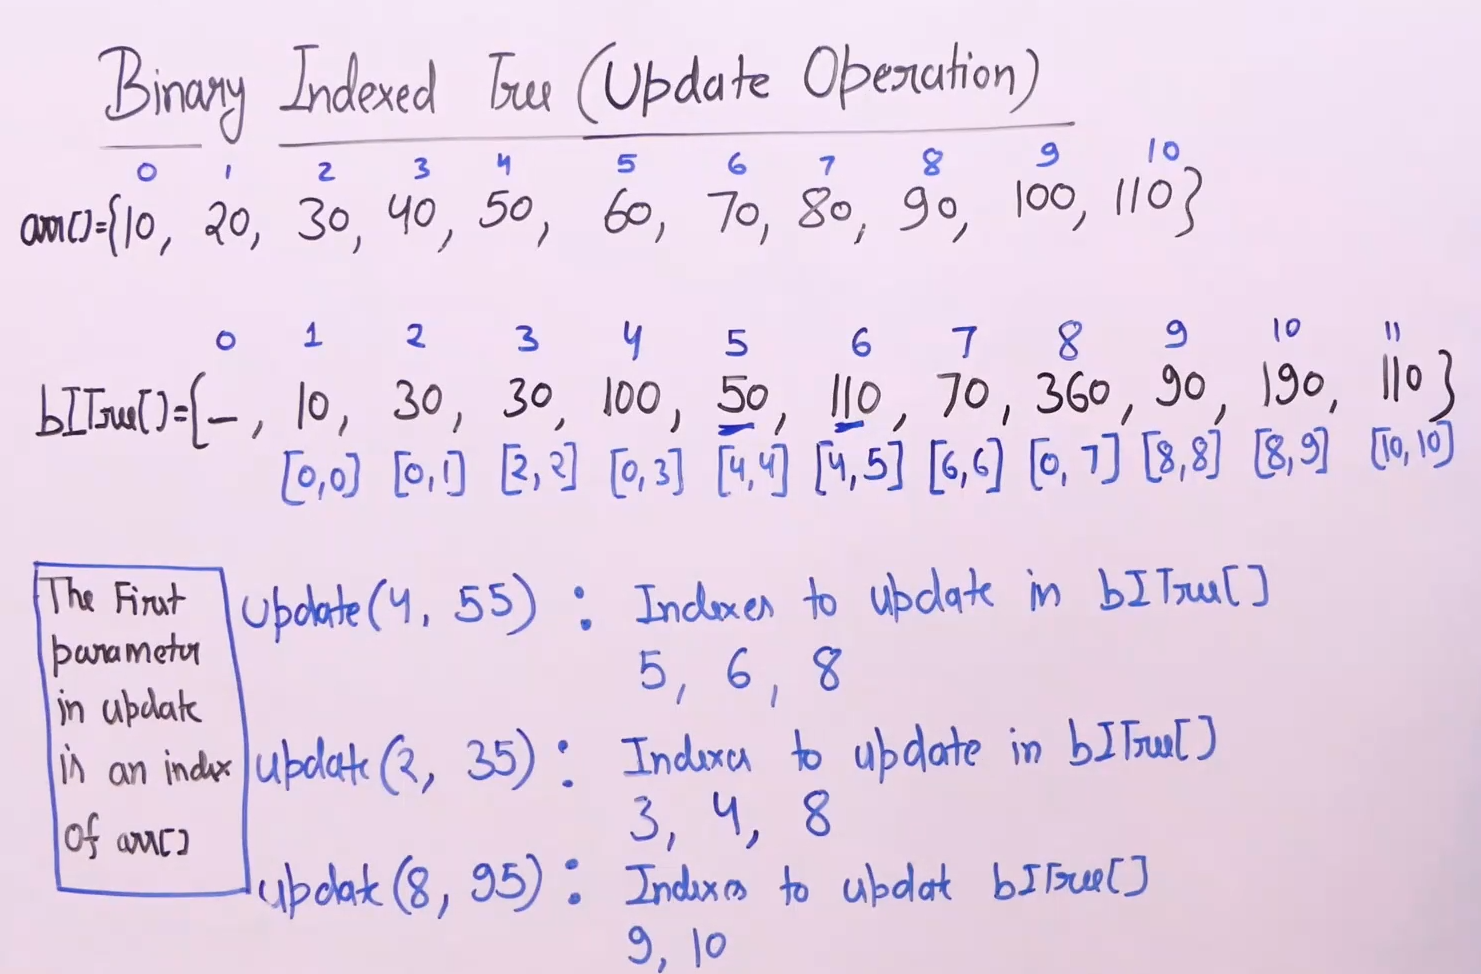 Binary Indexed Tree (Update Operation)
0 1 2 3 4 5 6 7 8 9 10
arr[]={10, 20, 30, 40, 50, 60, 70, 80, 90, 100, 110}
0 1 2 3 4 5 6 7 8 9 10 11
bITree[]={–, 10, 30, 30, 100, 50, 110, 70, 360, 90, 190, 110}
[0,0] [0,1] [2,2] [0,3] [4,4] [4,5] [6,6] [0,7] [8,8] [8,9] [10,10]
The First
parameter
in update
is an index
of arr[]
update(4, 55) : Indexes to update in bITree[]
5, 6, 8
update(2, 35) : Indexes to update in bITree[]
3, 4, 8
update(8, 95) : Indexes to update bITree[]
9, 10